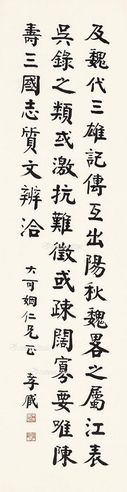 及魏代三雄記傳互出陽秋魏畧之屬江表
吳錄之類或激抗難徵或疎闊寡要唯陳
壽三國志質文辨洽
大可姻仁兄正 孝臧